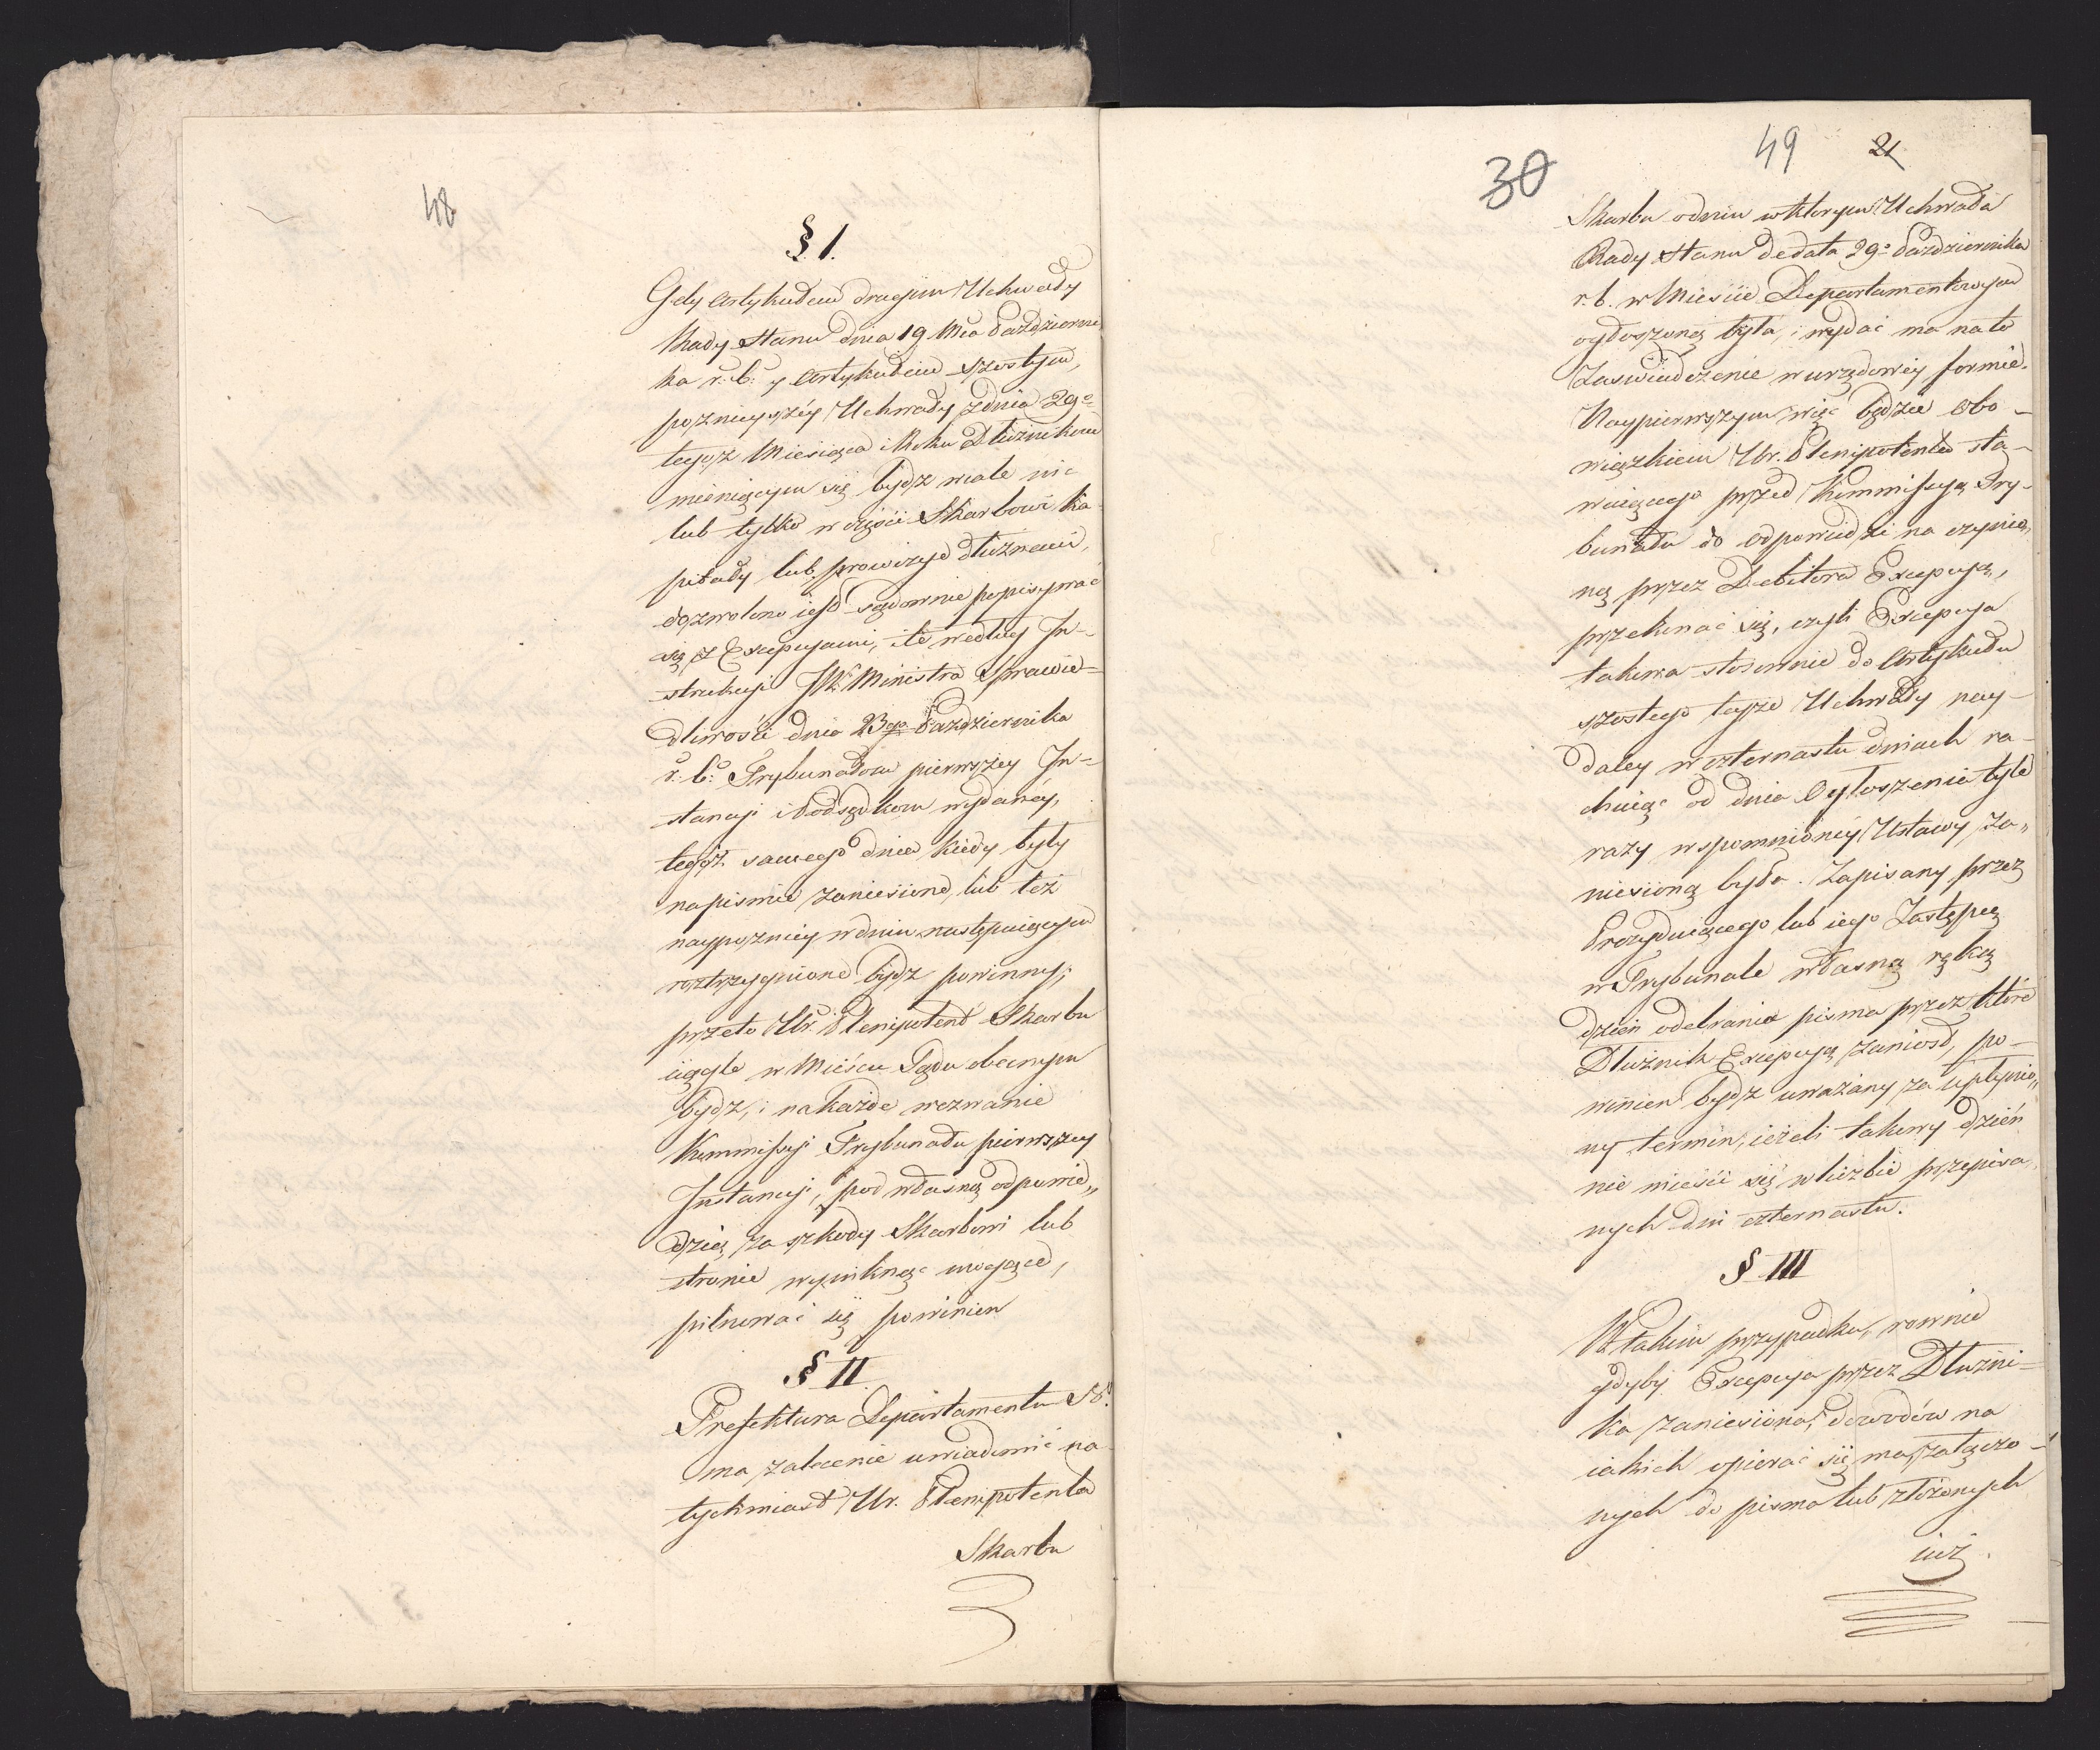 48
§ 1.
Gdy Artykułem drugim Uchwały
Rady Stanu dnia 19 Mca Październi
ka r: b: y Artykułem szostym,
poznieyszéy Uchwały z dnia 29º
tegoż Miesiąca i Roku Dłużnikom
mieniącym się bydź wcale nic
lub tylko w części Skarbowi ka
pitały lub prowizye dłużnemi,
dozwolono iest sądownie popisywać
się z Excepcyami, ile według In-
strukcyi JW Ministra Sprawie-
dliwości dnia 23go Października
r. b: Trybunałom pierwszey In-
stancyi i Podsędkom wydanéy,
tegoż samego dnia kiedy były
na pismie zaniesione, lub też
naypozniey w dniu następuiącym
roztrzygnione bydź powinny;
przeto Ur. Plenipotent Skarbu
ciągle w Mieścu Sądu obecnym
bydź, i na każde wezwanie
Kommissyi Trybunału pierwszey
Instancyi, pod własną odpowie„
dzią za szkody Skarbowi lub
stronie wyniknąć mogące,
pilnować się powinien
§ II
Prefektura Departamentu
ma zalecenie uwiadomić na
tychmiast Ur. Plenipotenta
Skarbu
30
49
21
Skarbu o dniu w ktorym Uchwała
Rady Stanu de data 29º Października
r. b. w Mieście Departamentowym
ogłoszoną była, i wydać ma na to
Zaswiadczenie w urzędowéy formie.
Naypierwszym więc będzie obo-
wiązkiem Ur. Plenipotenta sta-
waiącego przed Kommissyą Try-
bunału do odpowiedzi na czynio„
ną przez Debitora Excepcyą,
przekonać się, czyli Excepcya
takowa stosownie do Artykułu
szostego teyże Uchwały nay-
daley w czternastu dniach ra-
chuiąc od dnia Ogłoszenia tyle
razy wspomnionéy Ustawy, za„
niesioną była. Zapisany przez
Prezyduiącego lub iego Zastępcę
w Trybunale własną ręką
dzień odebrania pisma przez które
Dłużnik Excepcyą zaniosł, po-
winien bydź uważany za upłynio„
ny termin, ieżeli takowy dzień
nie mieści się w liczbie przepisa
nych dni czternastu.
§ III
W takim przypadku, rownie
gdyby Excepcya przez Dłużni-
ka zaniesiona, dowodów na
iakich opierać się ma, załączo-
nych do pisma lub złożonych
iuż.